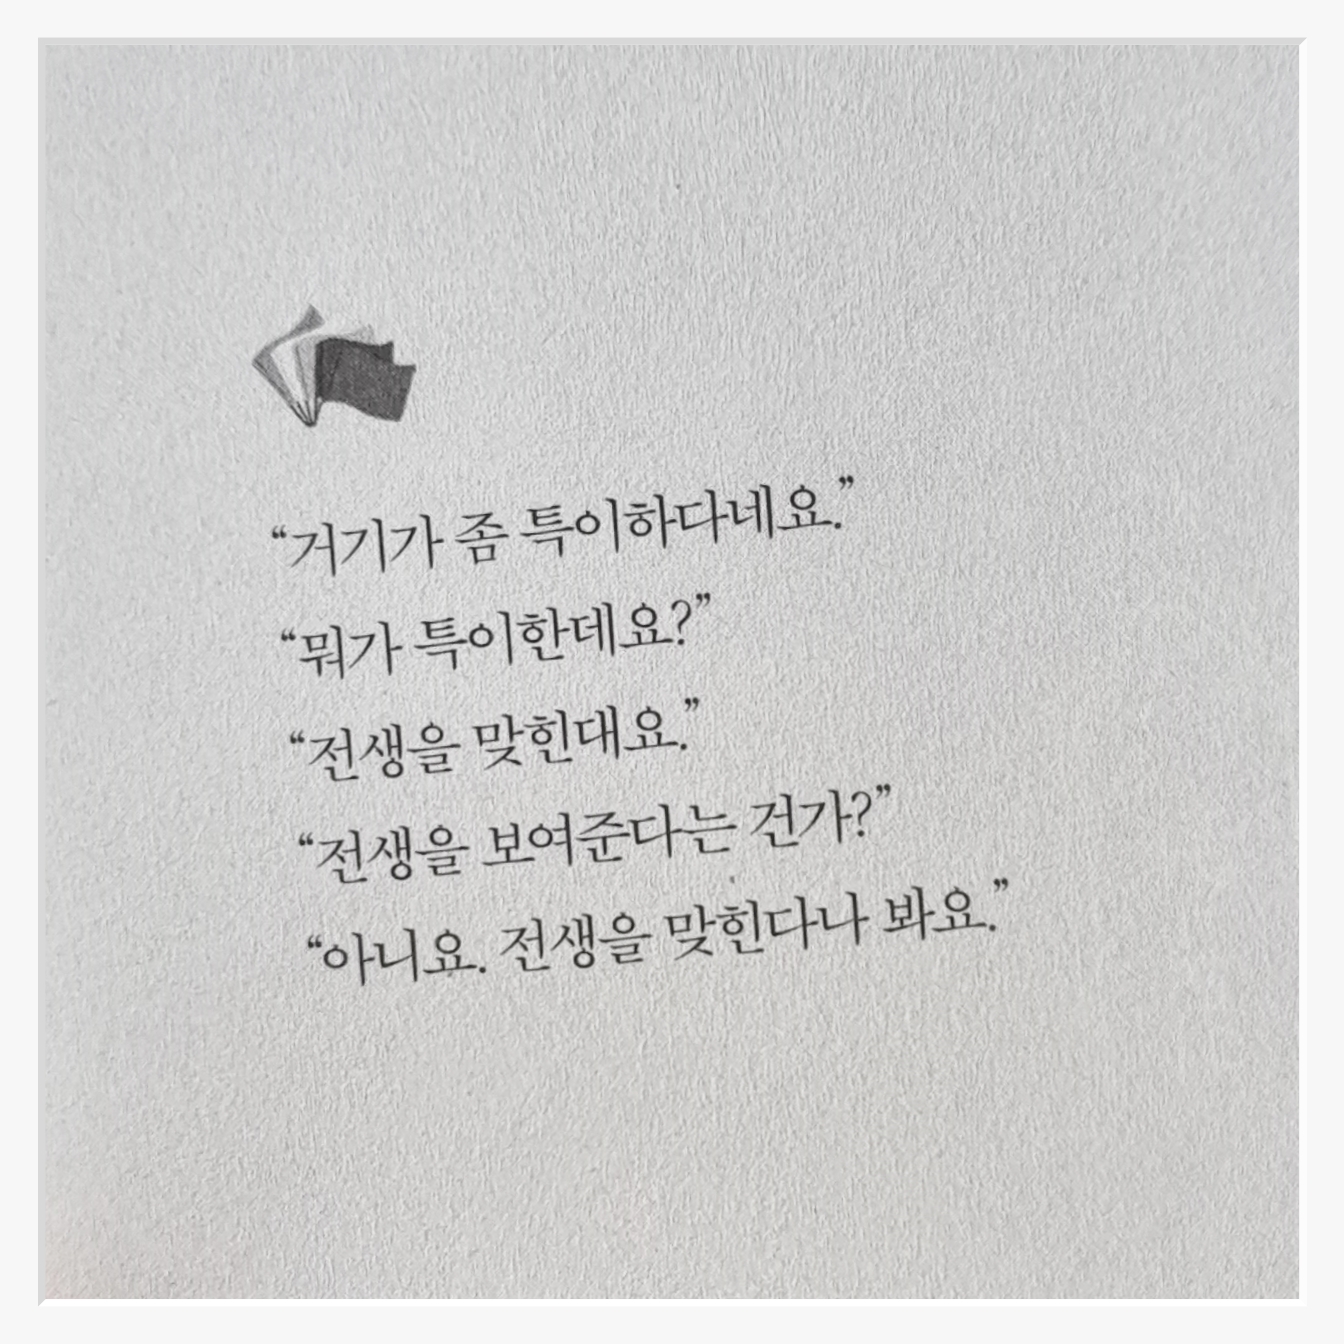 “거기가 좀 특이하다네요.”
“뭐가 특이한데요?”
“전생을 맞힌대요.”
“전생을 보여준다는 건가?”
“아니요. 전생을 맞힌다나 봐요.”